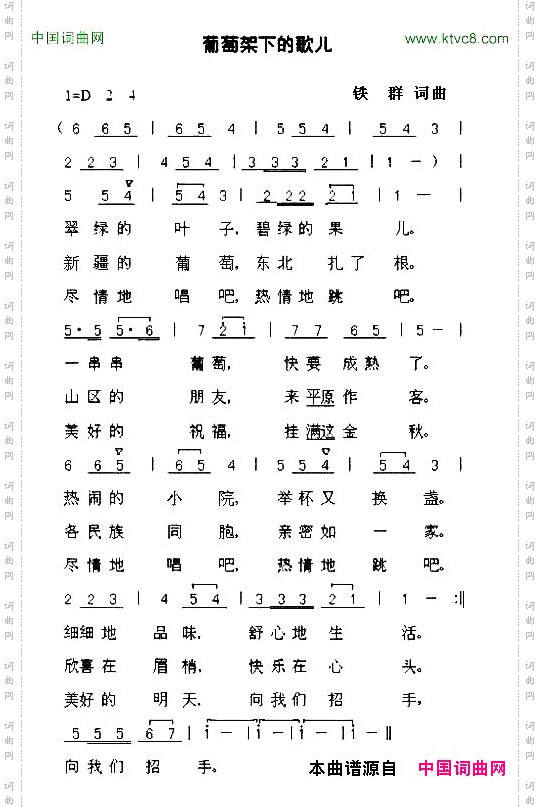 中国词曲网 葡萄架下的歌儿 www.ktvc8.com
1=D 2 4 铁 群 词曲
( 6 6 5 | 6 5 4 | 5 5 4 | 5 4 3 |
2 2 3 | 4 5 4 | 3 3 3 3 2 1 | 1 — ) |
5 5 4 | 5 4 3 | 2 2 2 2 2 1 | 1 — |
翠 绿 的 叶 子, 碧 绿 的 果 儿。
新 疆 的 葡 萄, 东 北 扎 了 根。
尽 情 地 唱 吧, 热 情 地 跳 吧。
5 · 5 5 · 6 | 7 2 i | 7 7 6 5 | 5 — |
一 串 串 葡 萄, 快 要 成 熟 了。
山 区 的 朋 友, 来 平原 作 客。
美 好 的 祝 福, 挂 满这 金 秋。
6 6 5 | 6 5 4 | 5 5 4 | 5 4 3 |
热 闹 的 小 院, 举 杯 又 换 盏。
各 民 族 同 胞, 亲 密 如 一 家。
尽 情 地 唱 吧, 热 情 地 跳 吧。
2 2 3 | 4 5 4 | 3 3 3 3 2 1 | 1 — :‖
细细 地 品 味, 舒 心 地 生 活。
欣喜 在 眉 梢, 快 乐 在 心 头。
美好 的 明 天, 向 我 们 招 手,
5 5 5 6 7 | i — | i — | i — ‖
向 我 们 招 手。 本曲谱源自 中国词曲网
词曲网